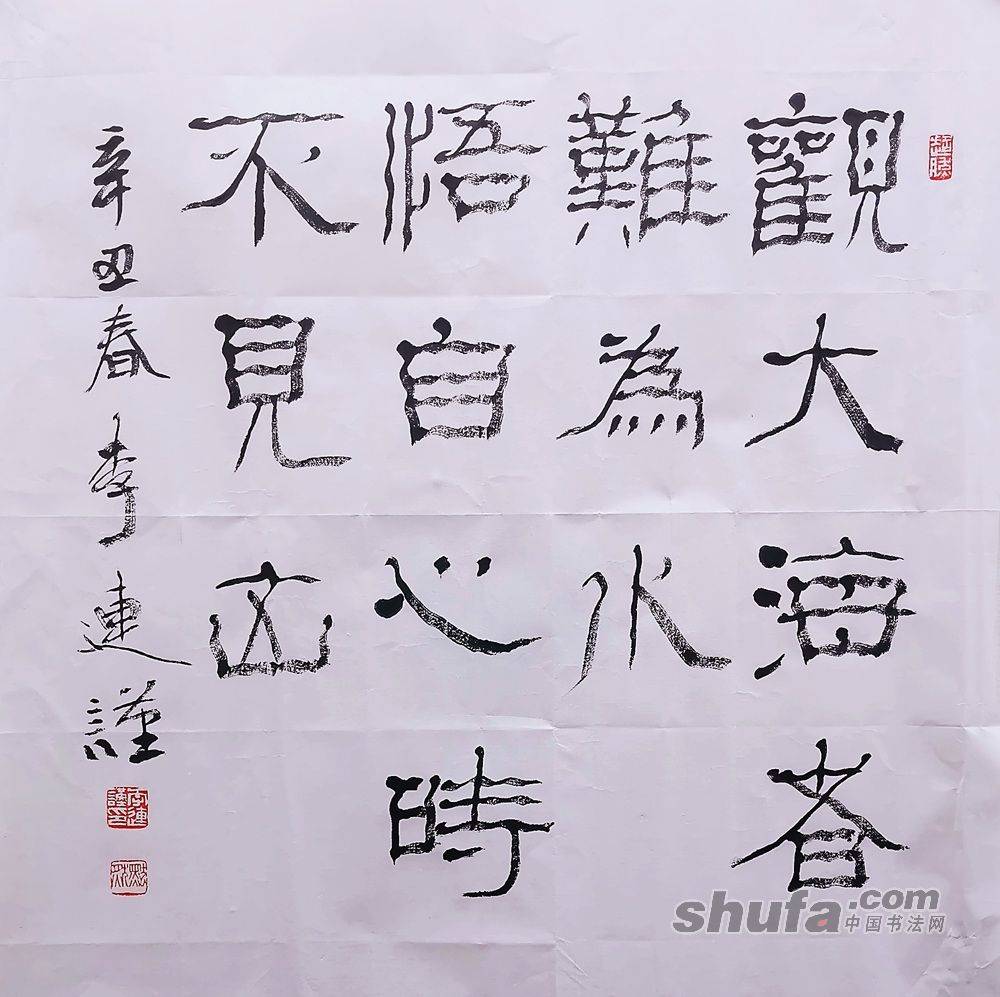 觀大海者
難為水
悟自心時
不見山
辛丑春李連謹
李連謹印
shufa.com
中国书法网